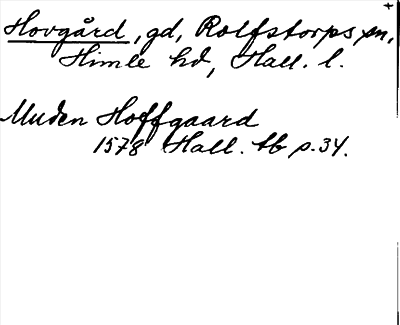 +
Hovgård, gd, Rolfstorps sn,
Himle hd, Hall. l.
Muden Hoffgaard
1578 Hall. tb p. 34.